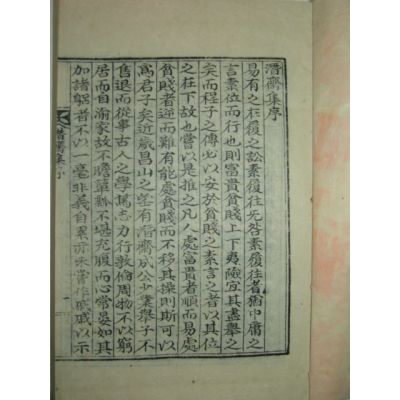 潛齋集序
易有之在復之訟素復往无咎素復往者猶中庸之
言素位而行也則富貴貧賤上下夷險宜其盡舉之
矣而程子之傳必以安於貧賤之素言之者以其位
在下故也嘗以是推之凡人處富貴者順而易處
貧賤者逆而難有能處貧賤而不移其操則斯可以
爲君子矣近歲昌山之
有潛齋成公少業舉子不
售退而從事古人之學篤志力行敦
周物不以窮
居而自
家故不贍簞瓢不堪充腹而心常晏如其
加諸躬者不以一毫非義自累亦未嘗作戚戚以示
潛齋集序